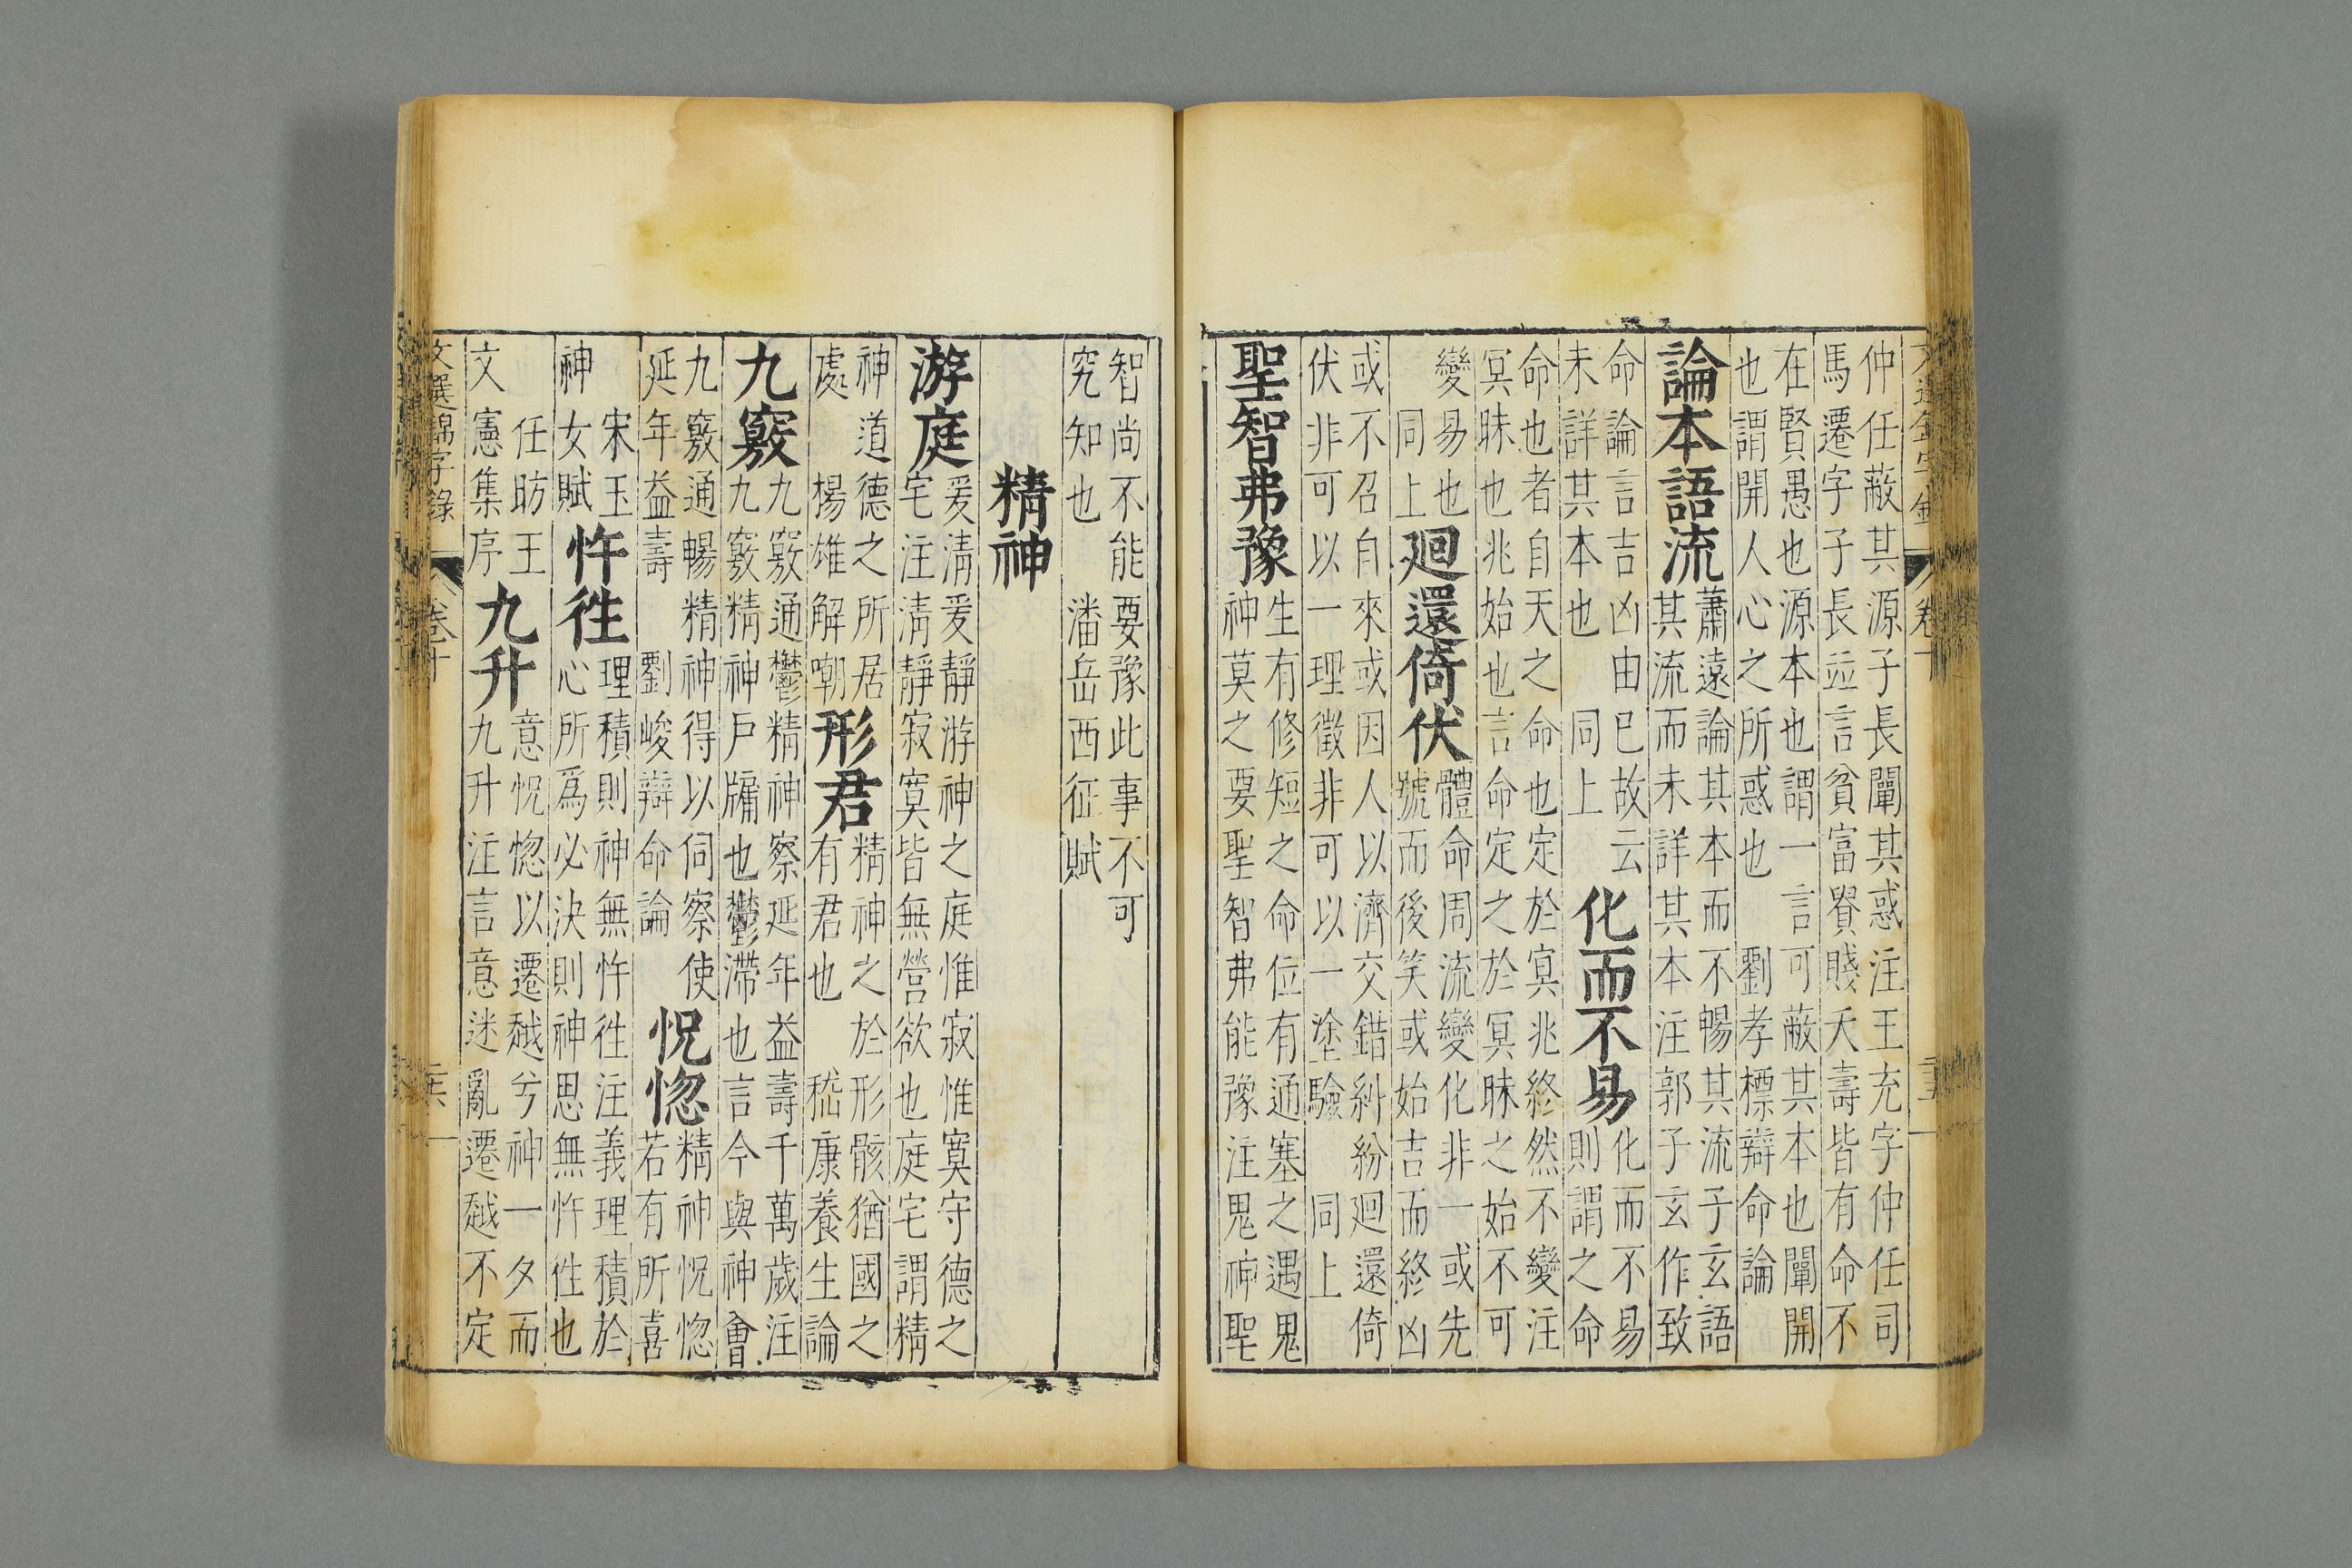 仲任蔽其源子長闡其惑注王充字仲任司
馬遷字子長並言貧富貴賤夭壽皆有命不
在賢愚也源本也謂一言可蔽其本也闡開
也謂開人心之所惑也　劉孝標辯命論
論本語流
蕭遠論其本而不暢其流子玄語
其流而未詳其本注郭子玄作致
命論言吉凶由巳故云
未詳其本也　同上
化而不易
化而不易
則謂之命
命也者自天之命也定於冥兆終然不變注
冥昧也兆始也言命定之於冥昧之始不可
變易也
同上
廻還倚伏
體命周流變化非一或先
號而後笑或始吉而終凶
或不召自來或因人以濟交錯糾紛廻還倚
伏非可以一理徵非可以一塗驗　同上
聖智弗豫
生有修短之命位有通塞之遇鬼
神莫之要聖智弗能豫注鬼神聖
智尚不能要豫此事不可
究知也　潘岳西征賦
精神
游庭
爰淸爰靜游神之庭惟寂惟寞守德之
宅注淸靜寂寞皆無營欲也庭宅謂精
神道德之所居
處　揚雄解嘲
形君
精神之於形骸猶國之
有君也　嵇康養生論
九竅
九竅通鬱精神察延年益壽千萬歲注
九竅精神戶牖也鬱滯也言今與神會
九竅通暢精神得以伺察使
延年益壽　劉峻辯命論
怳惚
精神怳惚
若有所喜
宋玉
神女賦
忤徃
理積則神無忤徃注義理積於
心所爲必決則神思無忤徃也
任昉王
文憲集序
九升
意怳惚以遷越兮神一夕而
九升注言意迷亂遷越不定
文選錦字錄
卷十
二六